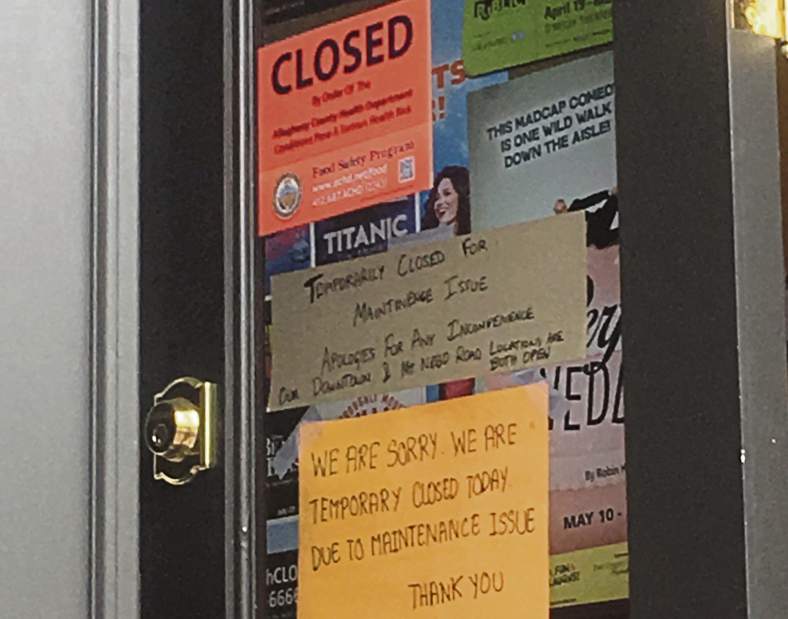 PUBLIC
April 19-
CLOSED
By Order Of The
Allegheny County Health Department
Conditions Pose A Serious Health Risk
Food Safety Program
www.achd.net/food
412.687.ACHD (2243)
TS
!
THIS MADCAP COMED
IS ONE WILD WALK
DOWN THE AISLE!
TITANIC
TEMPORARILY CLOSED FOR
MAINTINENCE ISSUE
APOLOGIES FOR ANY INCONVENIENCE
OUR DOWNTOWN & MT NEBO ROAD LOCATIONS ARE
BOTH OPEN
EDD
By Robin H
MAY 10 -
WE ARE SORRY. WE ARE
TEMPORARY CLOSED TODAY.
DUE TO MAINTENANCE ISSUE
THANK YOU
hCLO
666